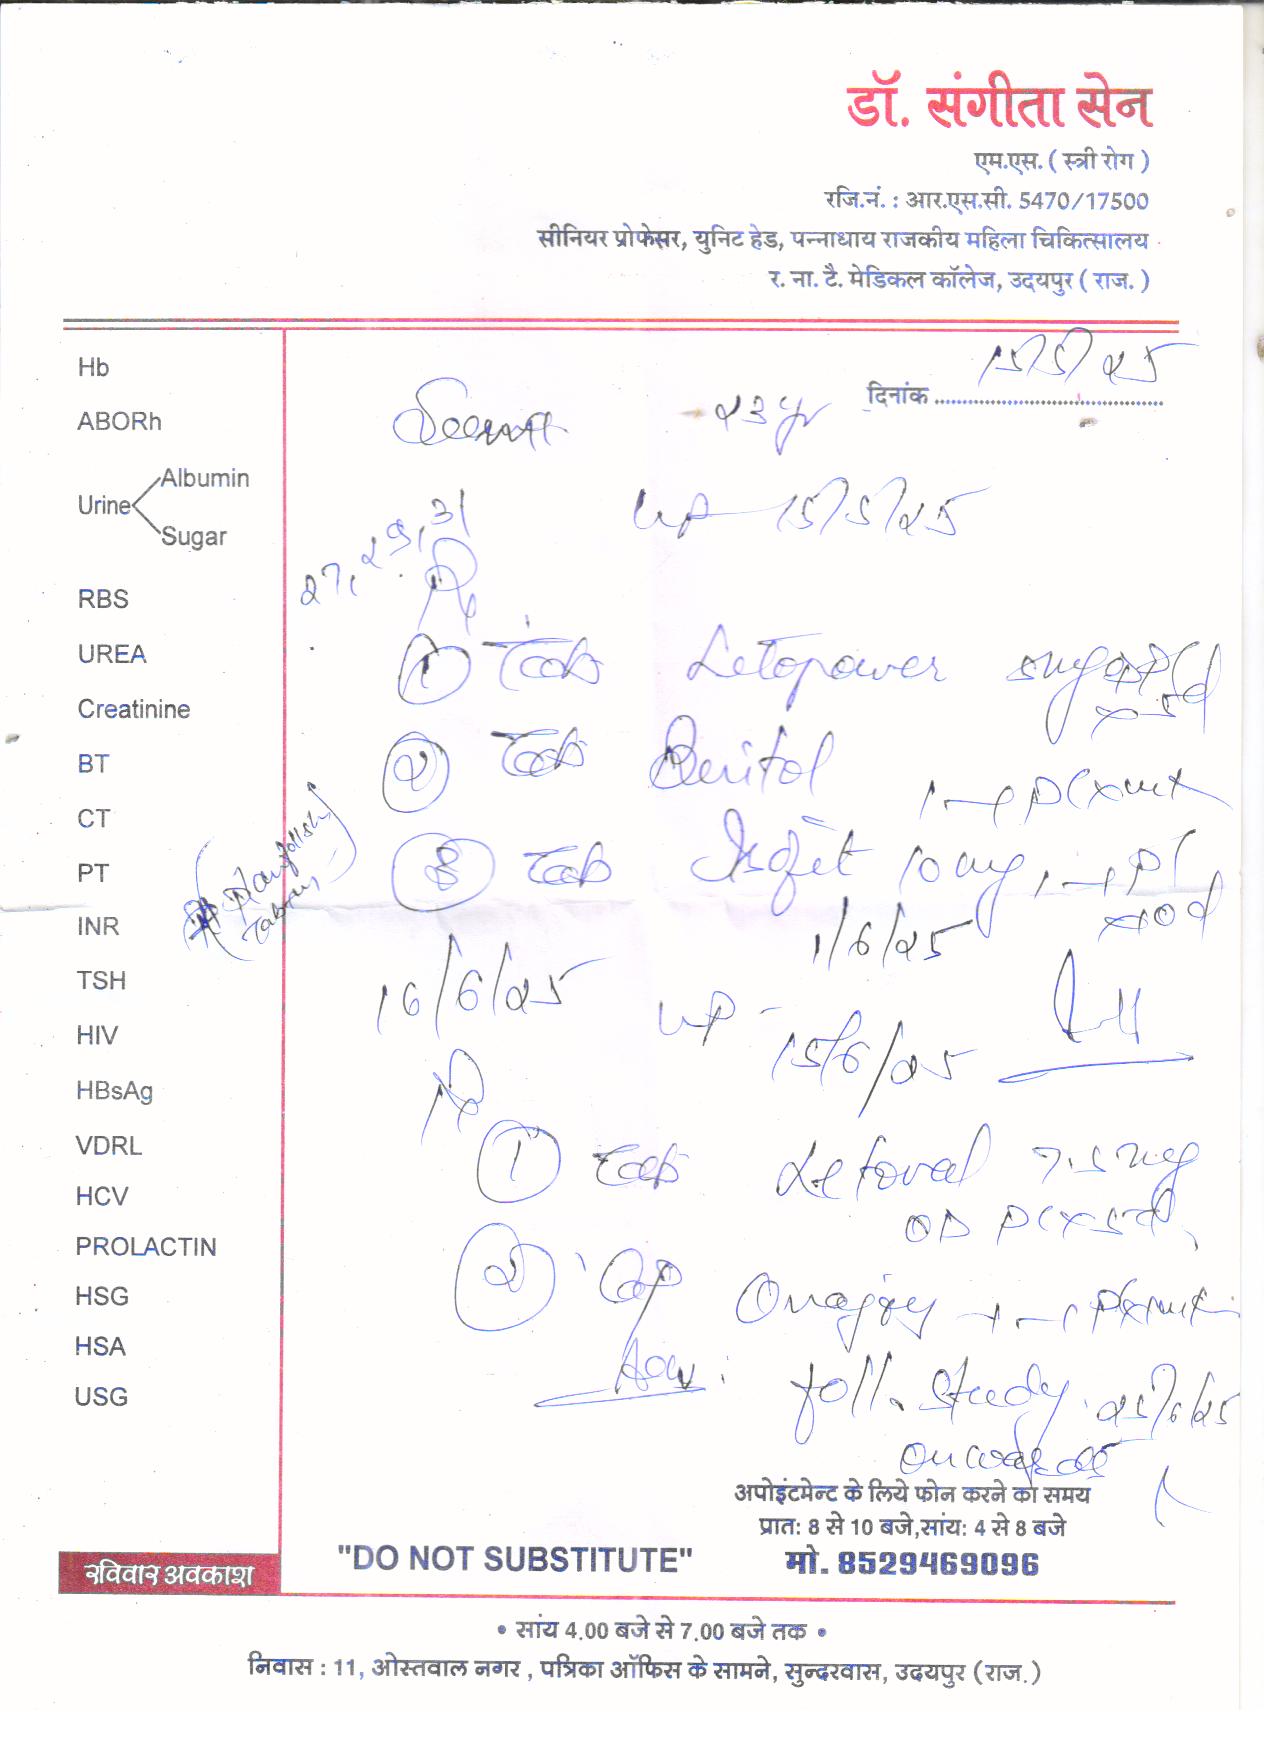 डॉ. संगीता सेन
एम.एस. ( स्त्री रोग )
रजि.नं. : आर.एस.सी. 5470/17500
सीनियर प्रोफेसर, युनिट हेड, पन्नाधाय राजकीय महिला चिकित्सालय
र. ना. टै. मेडिकल कॉलेज, उदयपुर ( राज. )
Hb
ABORh
Urine
Albumin
Sugar
RBS
UREA
Creatinine
BT
CT
PT
INR
TSH
HIV
HBsAg
VDRL
HCV
PROLACTIN
HSG
HSA
USG
दिनांक 15/5/25
23 yr
LMP 15/5/25
27, 29, 31
Rx
① Tab Letopower
② Tab
③ Tab 10mg
1/6/25
16/6/25 LMP - 15/6/25
Rx
① Tab Letoval 7.5 mg
OD PC x 5d
② Cap
Adv: foll. study 25/6/25
onwards
अपोइंटमेन्ट के लिये फोन करने का समय
प्रात: 8 से 10 बजे,सांय: 4 से 8 बजे
"DO NOT SUBSTITUTE" मो. 8529469096
रविवार अवकाश
• सांय 4.00 बजे से 7.00 बजे तक •
निवास : 11, ओस्तवाल नगर , पत्रिका ऑफिस के सामने, सुन्दरवास, उदयपुर (राज.)